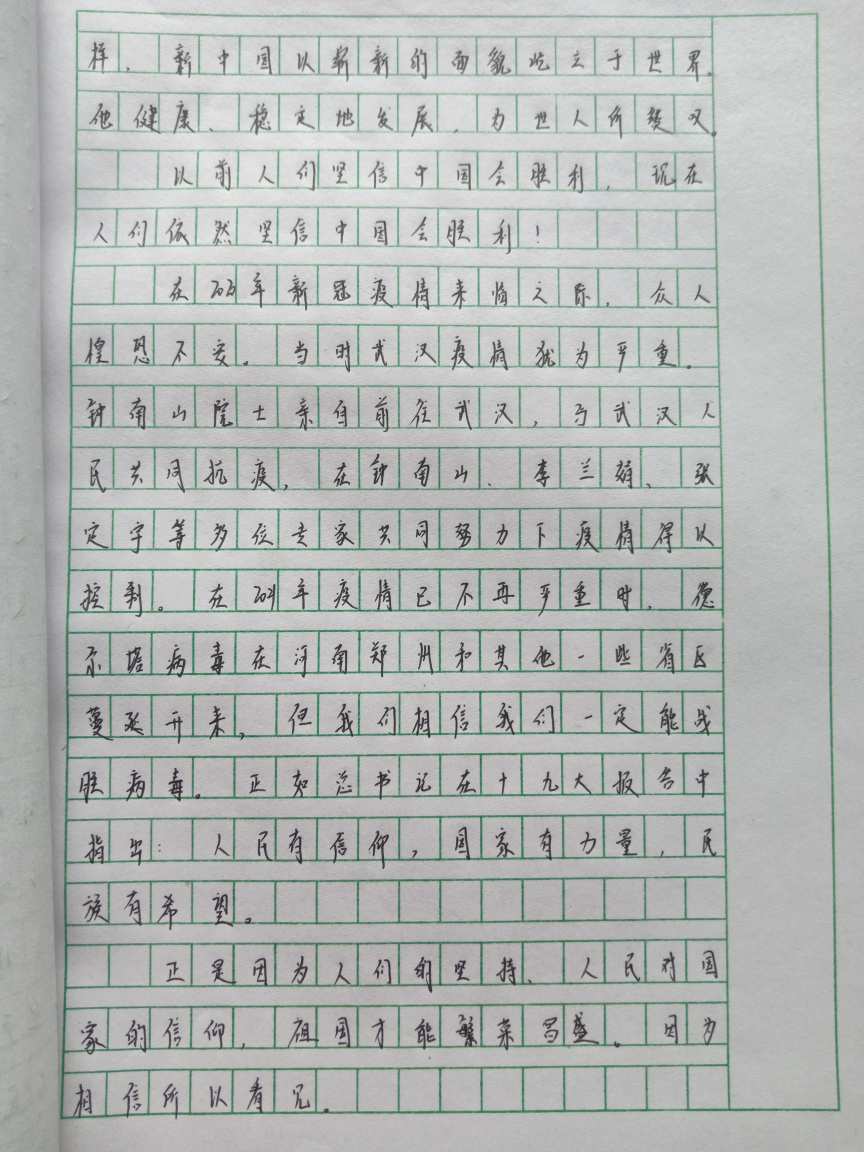 样，新中国以崭新的面貌屹立于世界。
他健康、稳定地发展，为世人所赞叹。
以前人们坚信中国会胜利，现在
人们依然坚信中国会胜利！
在2020年新冠疫情来临之际，众人
惶恐不安。当时武汉疫情犹为严重。
钟南山院士亲自前往武汉，与武汉人
民共同抗疫，在钟南山、李兰娟、张
定宇等多位专家共同努力下疫情得以
控制。在2021年疫情已不再严重时，德
尔塔病毒在河南郑州和其他一些省区
蔓延开来，但我们相信我们一定能战
胜病毒。正如总书记在十九大报告中
指出：人民有信仰，国家有力量，民
族有希望。
正是因为人们的坚持、人民对国
家的信仰，祖国才能繁荣昌盛。因为
相信所以看见。